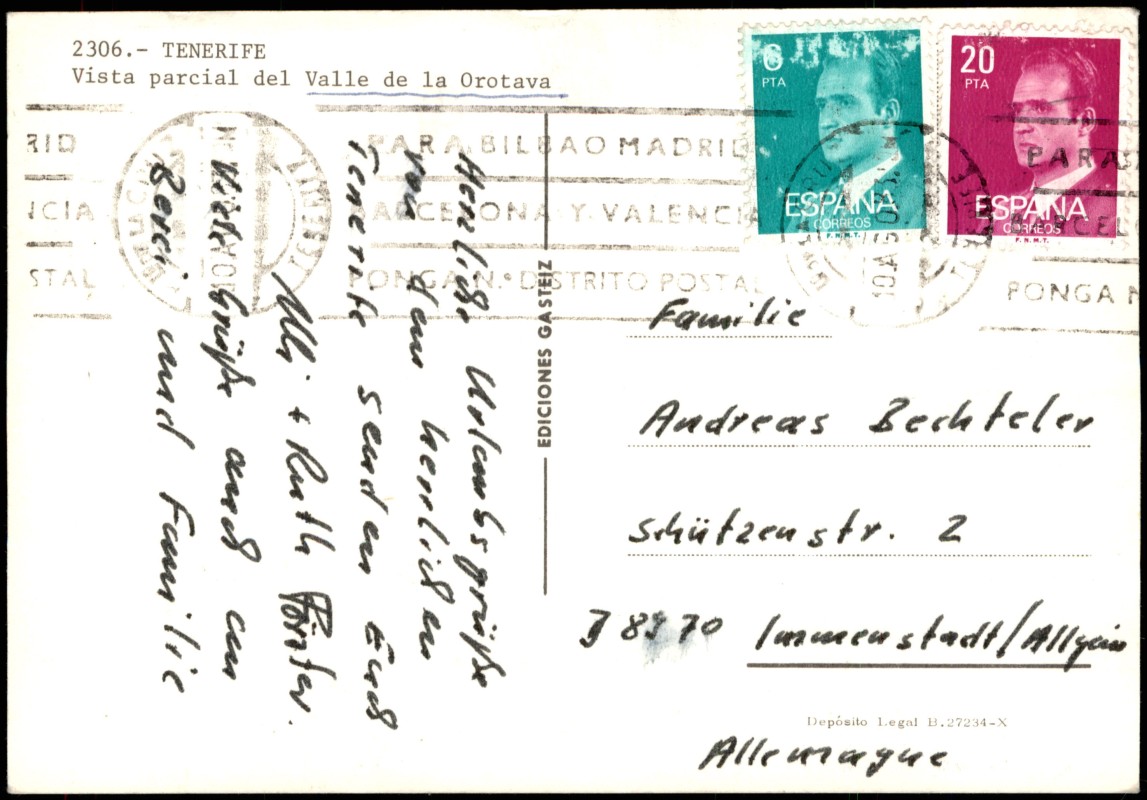 2306.- TENERIFE
Vista parcial del Valle de la Orotava
6
PTA
ESPAÑA
CORREOS
F.N.M.T.
20
PTA
ESPAÑA
CORREOS
F.N.M.T.
RID
PARA BILBAO MADRID
PARA
NCIA
BARCELONA Y VALENCIA
BARCEL
STAL
PONGA N.º DISTRITO POSTAL
PONGA N
Herzliche Urlaubsgrüße
von dem herrlichen
Tenerife senden Euch
Ulli + Ruth
Viele Grüße auch an
und Familie
EDICIONES GASTEIZ
Familie
Andreas Bechteler
Schützenstr. 2
8970 Immenstadt/Allgäu
Depósito Legal B.27234-X
Allemagne